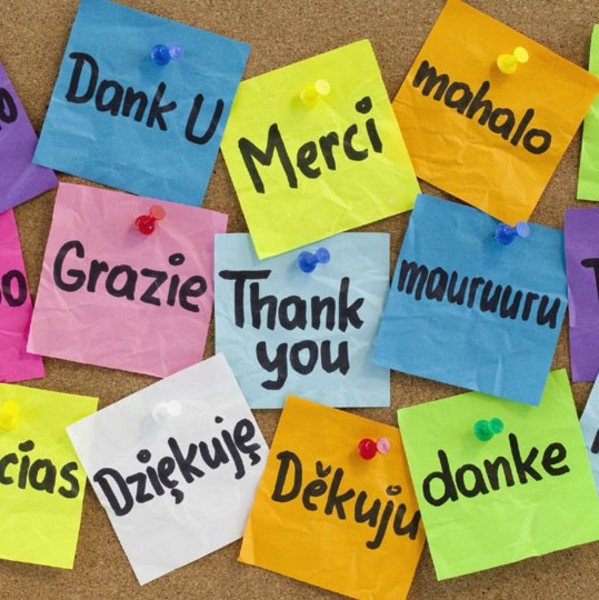 Dank U
Merci
mahalo
Grazie
Thank
you
mauruuru
cias
Dziękuję
Děkuju
danke